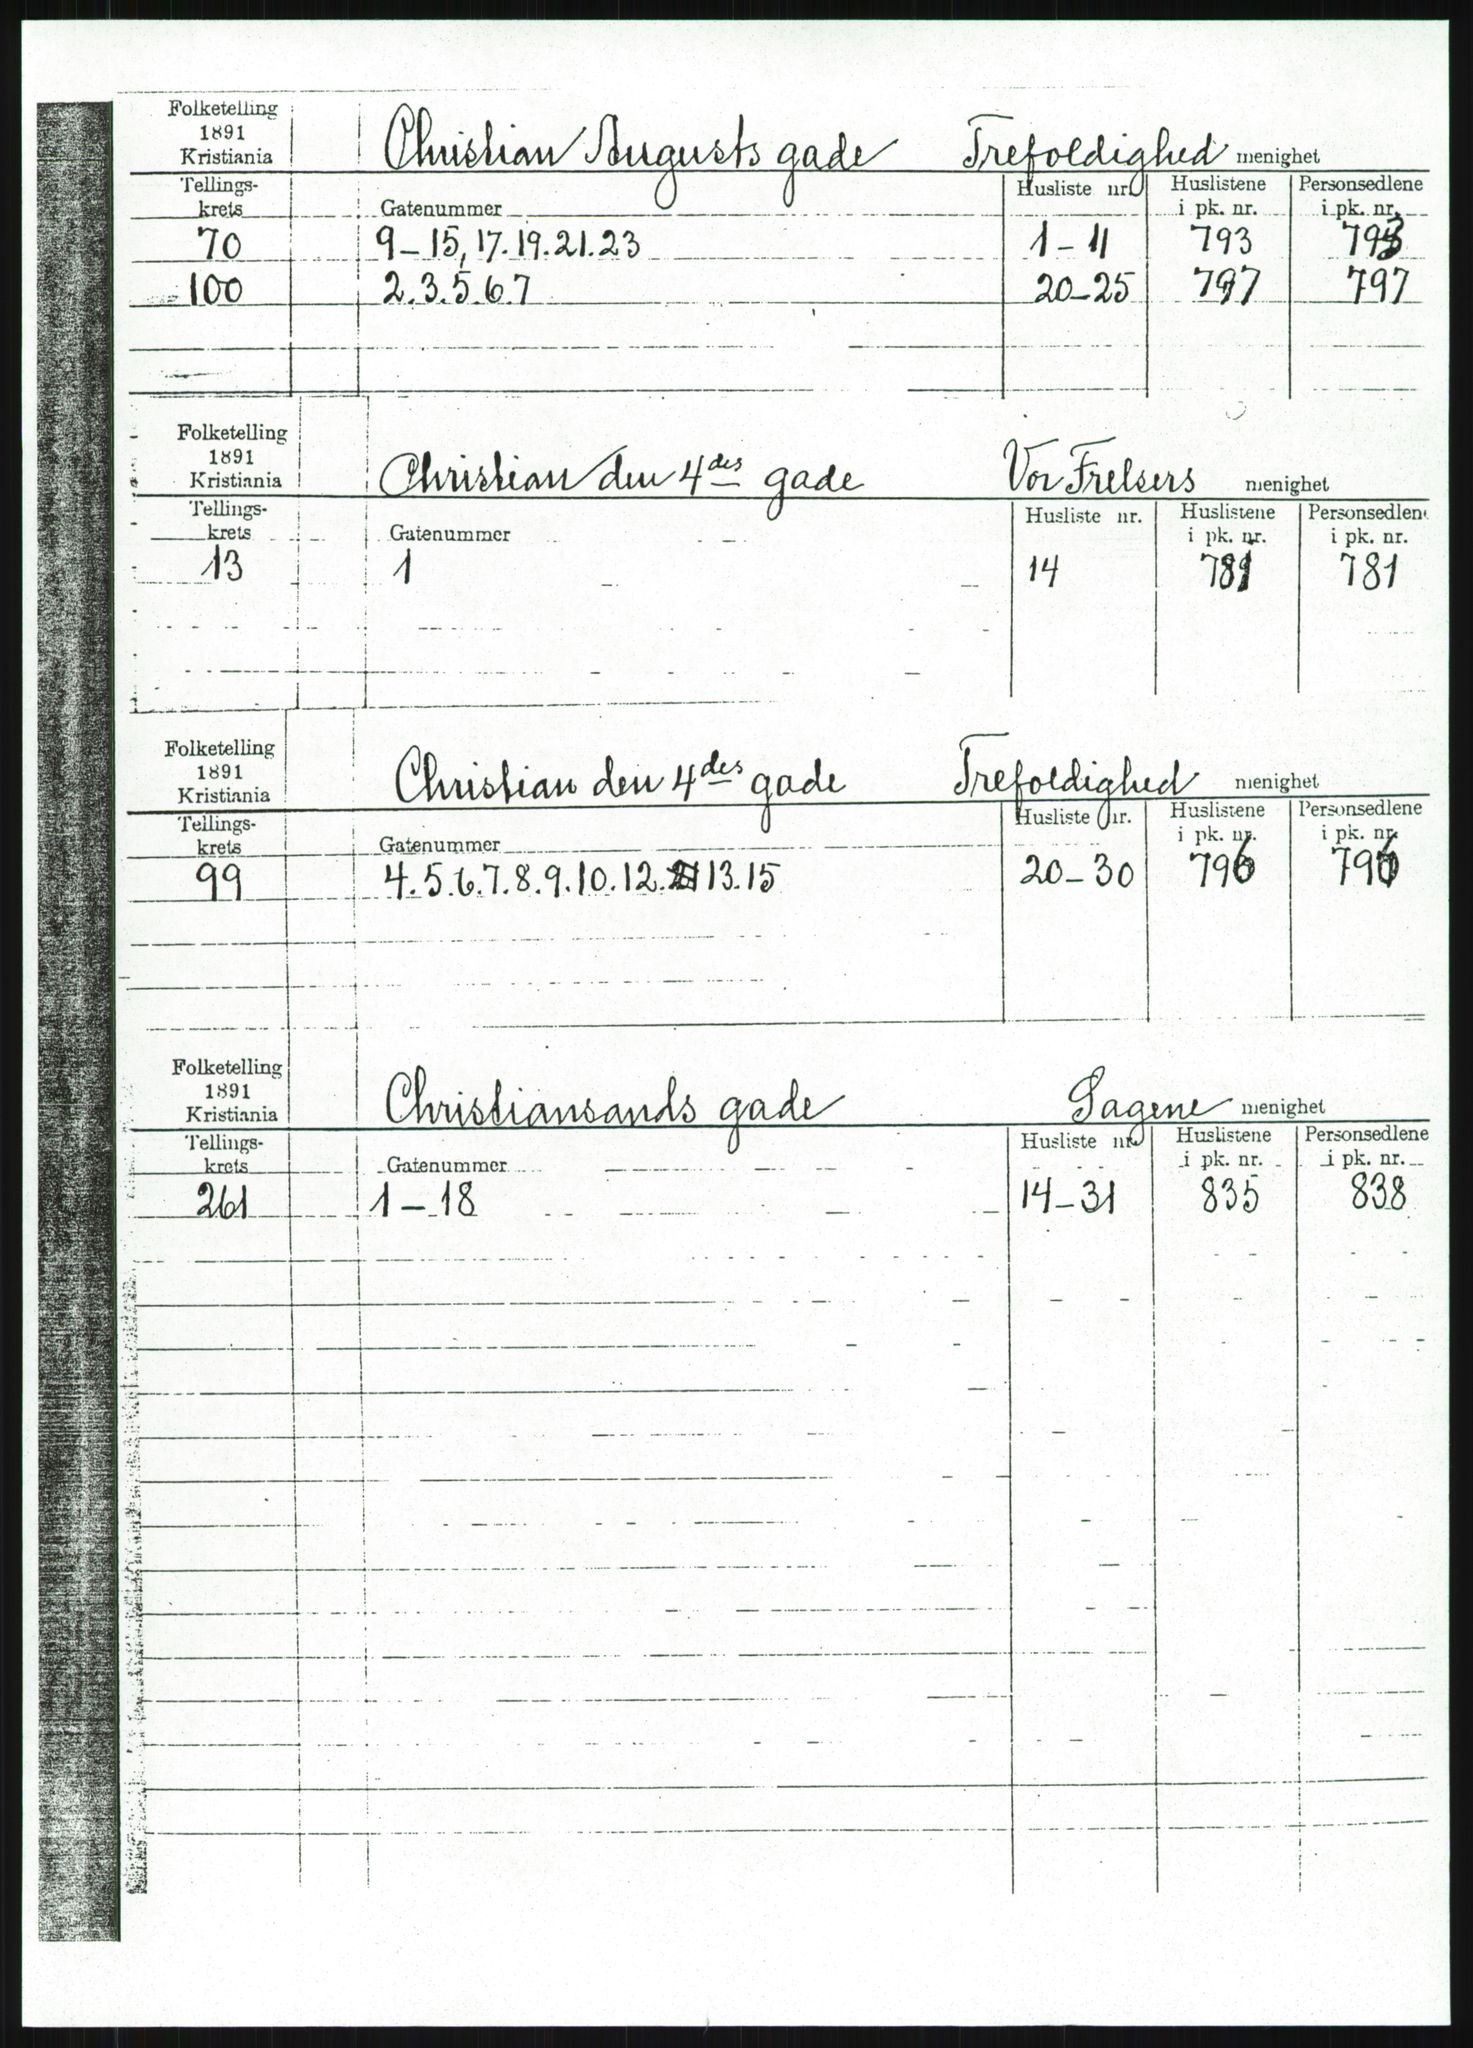 Folketelling
1891
Kristiania
Christian Augusts gade Trefoldighed menighet
Tellings-
krets Gatenummer Husliste nr. Huslistene i pk. nr. Personsedlene i pk. nr.
70 9-15, 17. 19. 21. 23 1-11 793 793
100 2. 3. 5. 6. 7 20-25 797 797
Folketelling
1891
Kristiania
Christian den 4des gade Vor Frelsers menighet
Tellings-
krets Gatenummer Husliste nr. Huslistene i pk. nr. Personsedlene i pk. nr.
13 1 14 781 781
Folketelling
1891
Kristiania
Christian den 4des gade Trefoldighed menighet
Tellings-
krets Gatenummer Husliste nr. Huslistene i pk. nr. Personsedlene i pk. nr.
99 4. 5. 6. 7. 8. 9. 10. 12. 13. 15 20-30 796 796
Folketelling
1891
Kristiania
Christiansands gade Sagene menighet
Tellings-
krets Gatenummer Husliste nr. Huslistene i pk. nr. Personsedlene i pk. nr.
261 1-18 14-31 835 838